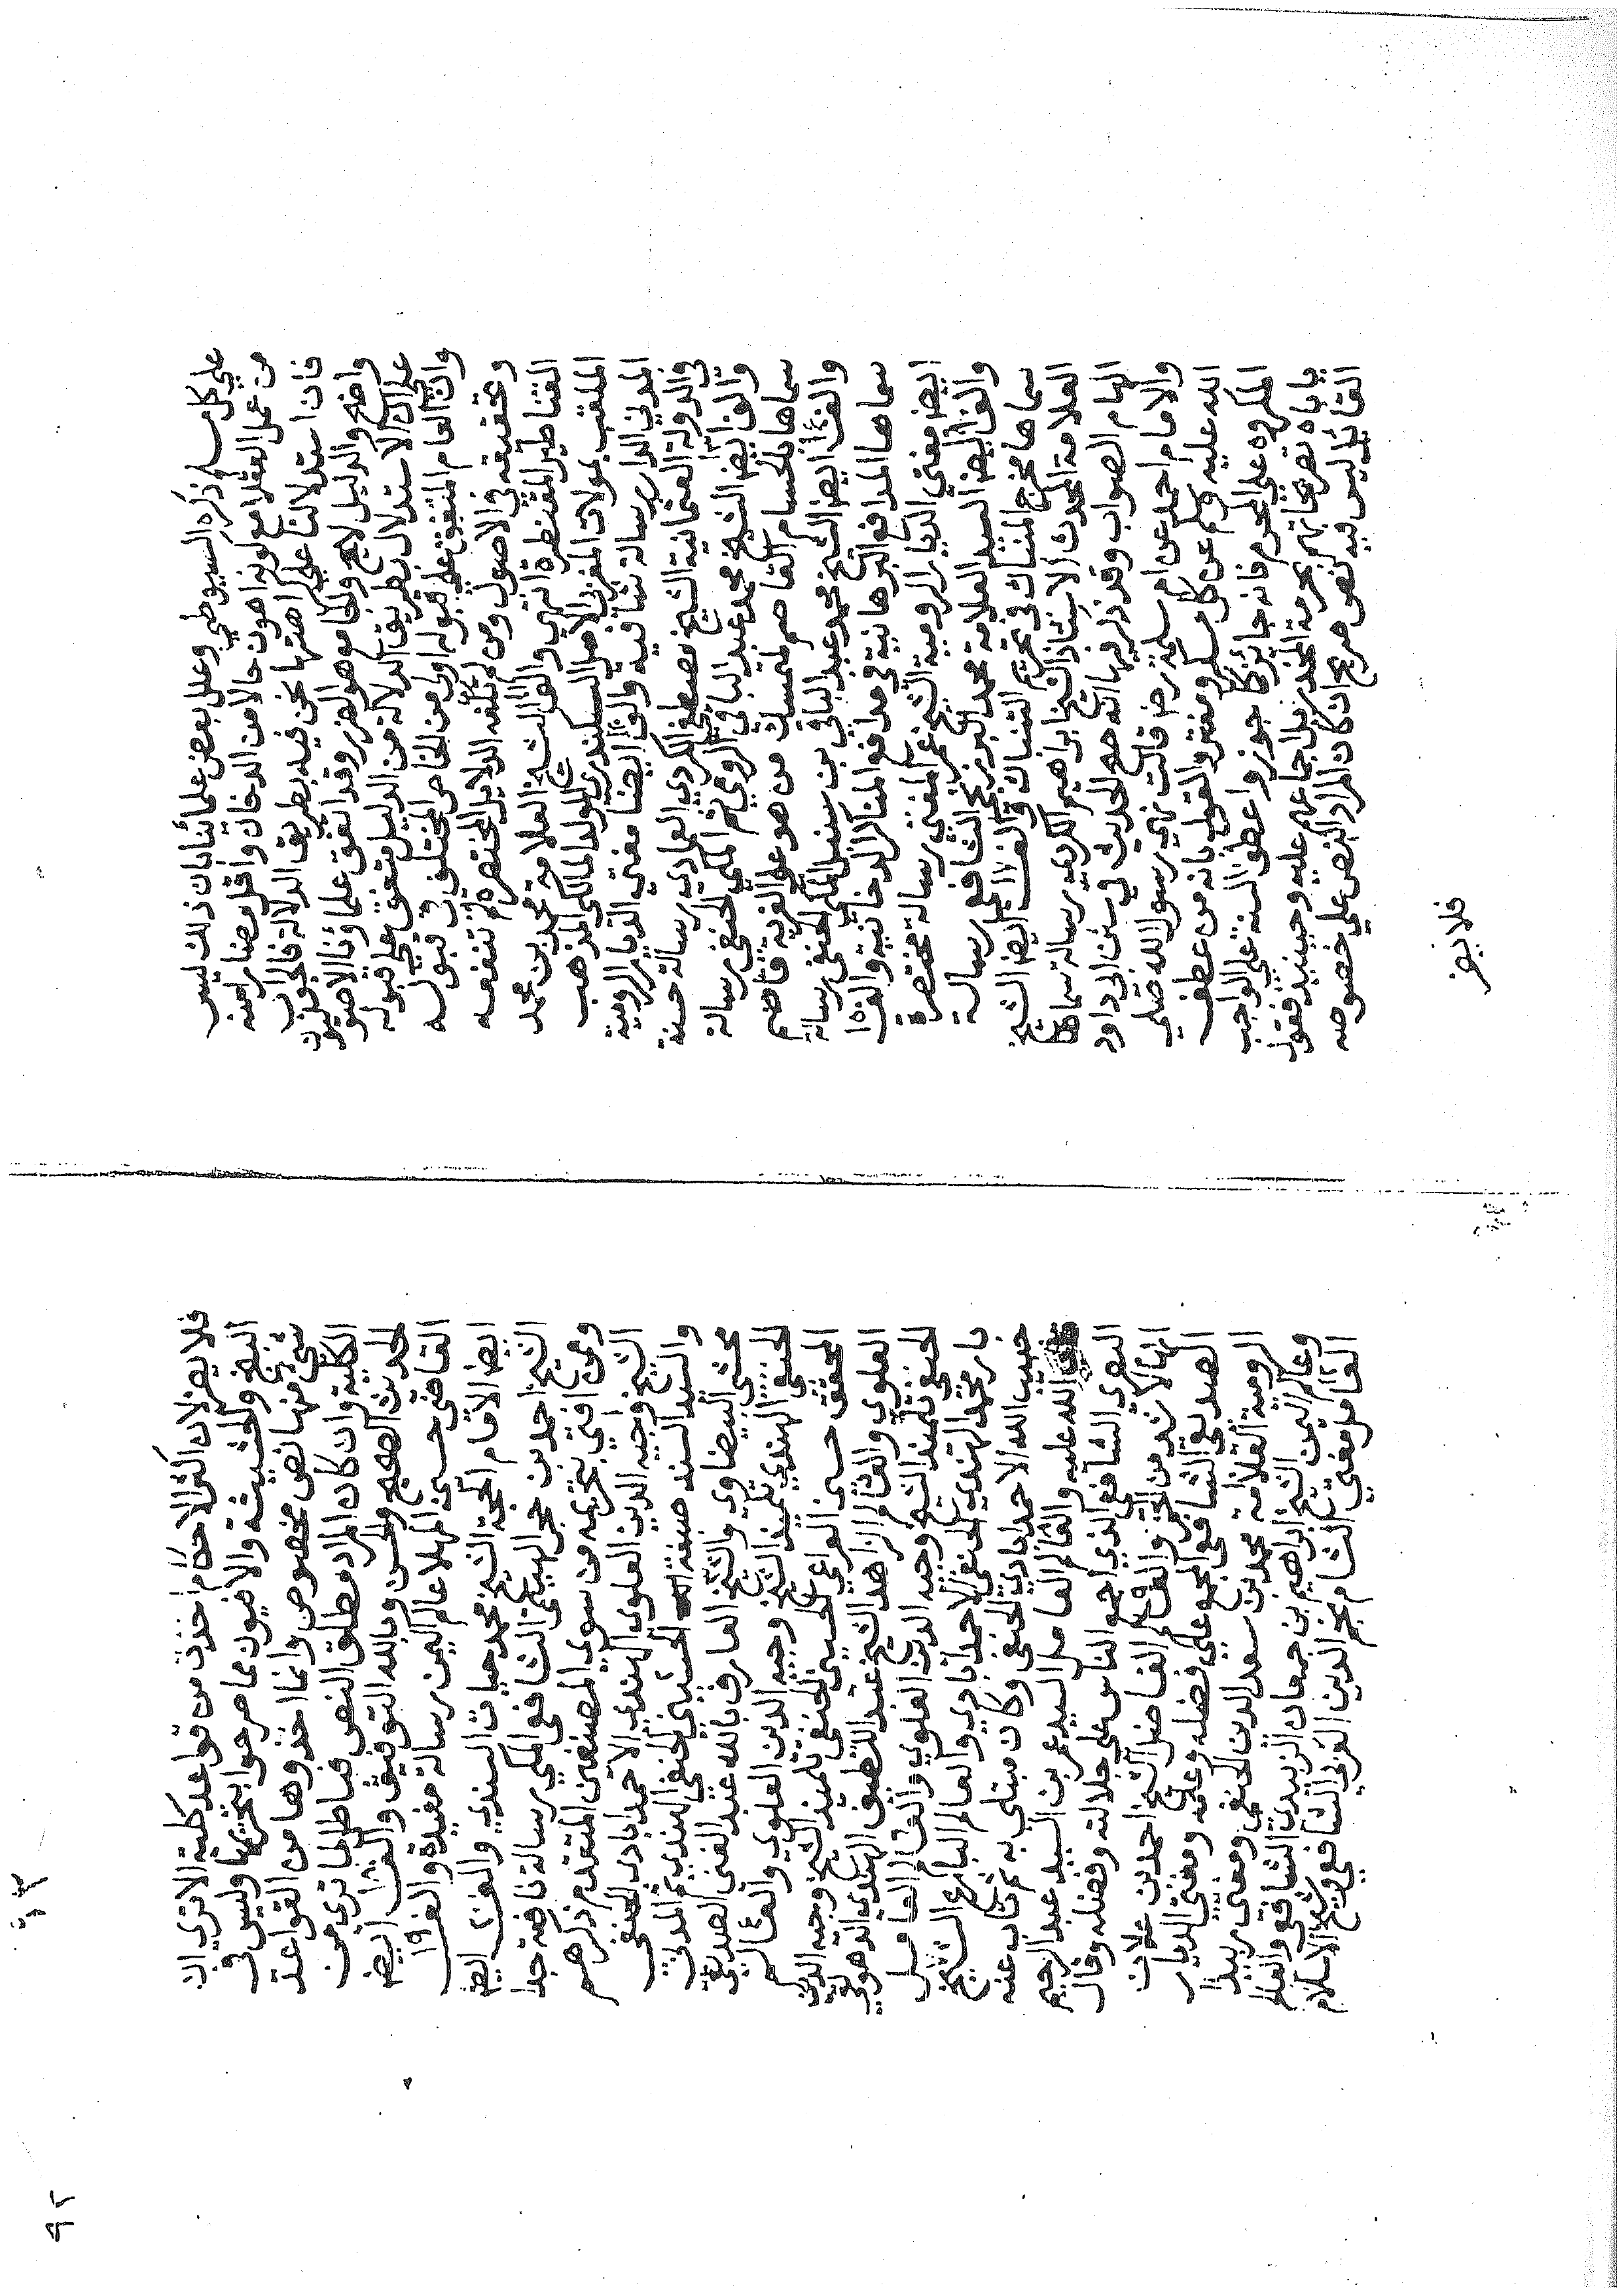 على كل مسلم ذكره السيوطي وعلل بعض علمائنا بان ذلك ليس
من عمل العقلا مع كونه اهون حالا من الدخان واقل مضارا منه
فان استدلالنا على كراهتها نحن فيه بطريق الدلالة فالجواب
واضح والدليل لايح والجامع هو الضرر وقد اتفق علماؤنا الاصوليون
على ان الاستدلال بطريق الدلالة من الدليل متفق على قبوله
وان العام المتفق على قبوله اولى من الخاص المختلف في قبوله
وتحقيقه في الاصول ومن لم تكفه الدلايل المختصرة لم تنفعه
القناطير المقنطرة انتهى والف الشيخ العلامة محمد بن محمد
الملقب بمولات المغربي الاصل السكندري المولد المالكي المذهب
المدني الدار رسالة شافية والف ايضا مفتي الديار الرومية
والدولة العثمانية الشيخ مصطفى الكردي العمادي رسالة حسنة
والف ايض الشيخ محمد عبد الباقي الرومي ثم المكي الحنفي رسالة
سماها بالحسام القاصم لمتمسك من هو على الفرية قاضم
والف ١٤ ايض الشيخ محمد عبد الباقي بن سنبل المكي الحنفي رسالة
سماها المدافع البرهانية في مدافع المناكر الدخانية والف ١٥
ايض مفتي الديار الرومية الشيخ عمر المفتي رسالة مختصرة
والف ايض السيد العلامة محمد البرزنجي الشافعي رسالة
سماها مخرج المنتاك في تحريم التنباك والف ١٧ ايض الشيخ
العلامة المحدث الاستاذ الشيخ ابراهيم الكردي رسالة سماها
الهام الصواب وقد ذكر فيها انه صح الحديث في سنن ابي داود
والامام احمد عن ام سلمة رض قالت نهى رسول الله صلى
الله عليه وسلم عن كل مسكر ومفتر والقول بانه من عطف
المكروه على المحرم فانه جائز كما جوزوا عطف السنة على الواجب
ياباه تصريحاتهم بحرمة المخدر بل اجماعهم عليه وحينئيذ فقول
القائيل ليس فيه نص صريح ان كان المراد النص على خصوصه
فلا يضر
فلا يضر لان اكثر الاحكام اخذت من قواعد كلية الا ترى ان
البنج والحشيشة والافيون مما صرحوا بتحريمها وليس في
شي منها نص مخصوص وانما اخذوها من القواعد
الكلية وان كان المراد مطلق النص فباطل لما ترى من
الحديث الصحيح والحسن وبالله التوفيق والف ١٨ ايض
القاضي حسين المهلا عالم اليمن رسالة مفيدة والف ١٩
ايضا الامام الحجة الشيخ محمد حيات السندي والف ٢٠ ايض
الشيخ احمد بن حجر الهيتمي الشافعي المكي رسالة نافعة جدا
وممن افتى بتحريمه من سوى المصنفين المتقدم ذكرهم
الشيخ وجيه الدين العلوي الهندي الاحمد ابادي الحنفي
والسيد السند صبغة الله الحسيني الحنفي الهندي ثم المدني
محشي البيضاوي والشيخ العارف بالله عبد الغني الصديقي
الحنفي الهندي تلميذ الشيخ وجيه الدين العلوي والعالم
المحقق حسن الفراغي الحسيني الحنفي تلميذ الشيخ وجيه الدين
العلوي والعالم الزاهد الشيخ عبد اللطيف الهندي الدهولي
الحنفي تلميذ الشيخ وجيه الدين العلوي والعالم العامل
يار محمد الهندي الحنفي الاحمد ابادي والعالم البارع الشيخ
حبيب الله الاحمد ابادي الحنفي وكان مبتلى به ثم تاب عنه
الله عليه والعالم العامل السيد عمر بن السيد عبد الرحيم
البصري الشافعي الذي اجمع الناس على جلالته وفضله وقال
انها لاشد من الخمر والعالم الفاضل الشيخ احمد بن علان
الصديقي الشافعي المجمع على فضله وعلمه ومفتي الديار
الرومية العلامة محمد بن سعد الدين الحنفي ومفتي زبيد
وعالم اليمن الشيخ ابراهيم بن جمعان الزبيدي الشافعي والعالم
العامل مفتي الشام نجم الدين الغزي الشافعي وشيخ الاسلام